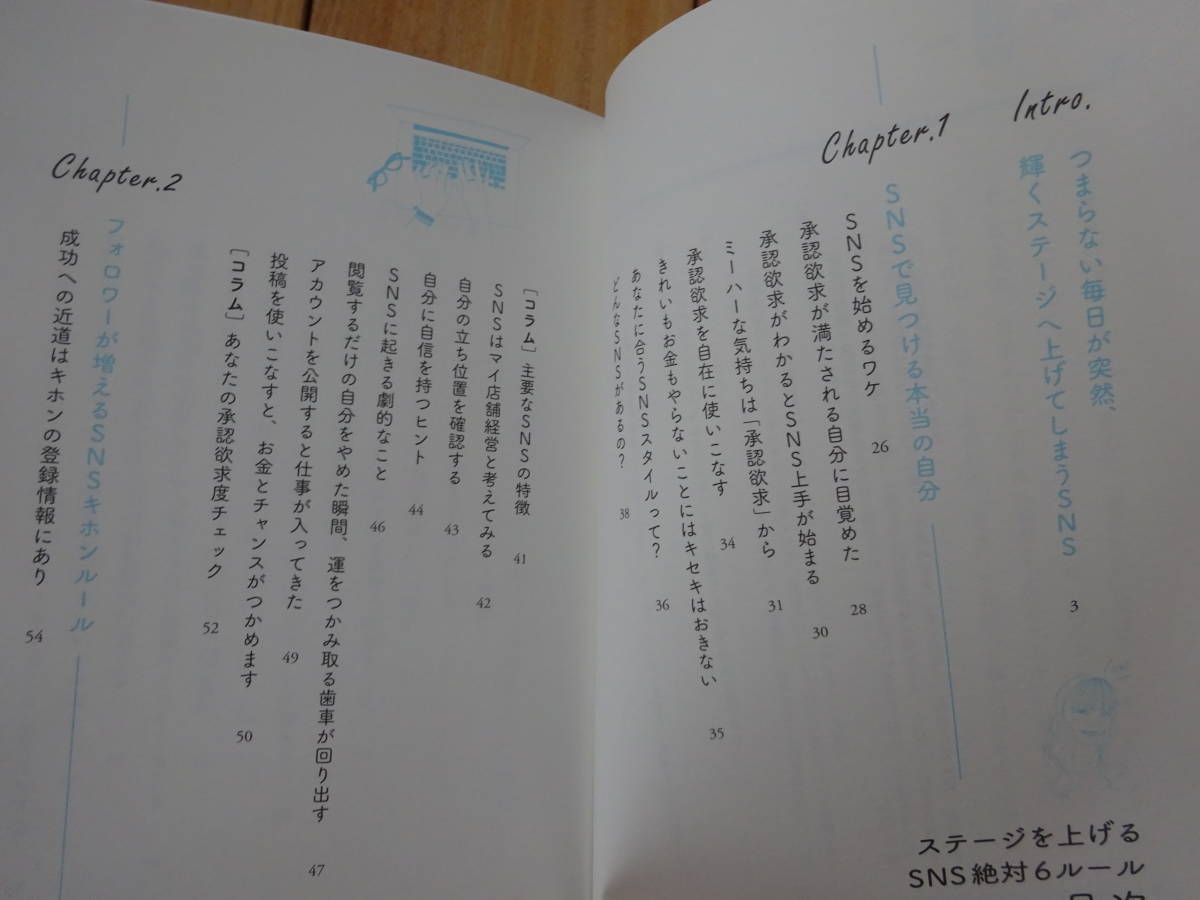 ステージを上げる
SNS絶対6ルール
目次
Intro.
つまらない毎日が突然、
輝くステージへ上げてしまうSNS
3
Chapter.1
SNSで見つける本当の自分
SNSを始めるワケ
26
承認欲求が満たされる自分に目覚めた
28
承認欲求がわかるとSNS上手が始まる
30
ミーハーな気持ちは「承認欲求」から
31
承認欲求を自在に使いこなす
34
きれいもお金もやらないことにはキセキはおきない
35
あなたに合うSNSスタイルって?
36
どんなSNSがあるの?
38
[コラム] 主要なSNSの特徴
41
SNSはマイ店舗経営と考えてみる
42
自分の立ち位置を確認する
43
自分に自信を持つヒント
44
SNSに起きる劇的なこと
46
閲覧するだけの自分をやめた瞬間、運をつかみ取る歯車が回り出す
47
アカウントを公開すると仕事が入ってきた
49
投稿を使いこなすと、お金とチャンスがつかめます
50
[コラム] あなたの承認欲求度チェック
52
Chapter.2
フォロワーが増えるSNSキホンルール
成功への近道はキホンの登録情報にあり
54